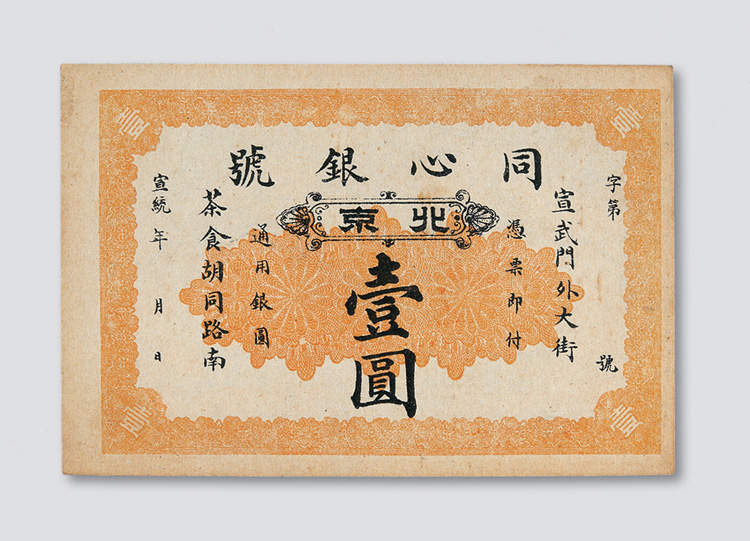 同心銀號
北京
字第 號
宣武門外大街
憑票即付
壹圓
通用銀圓
茶食胡同路南
宣統 年 月 日
壹
壹
壹
壹